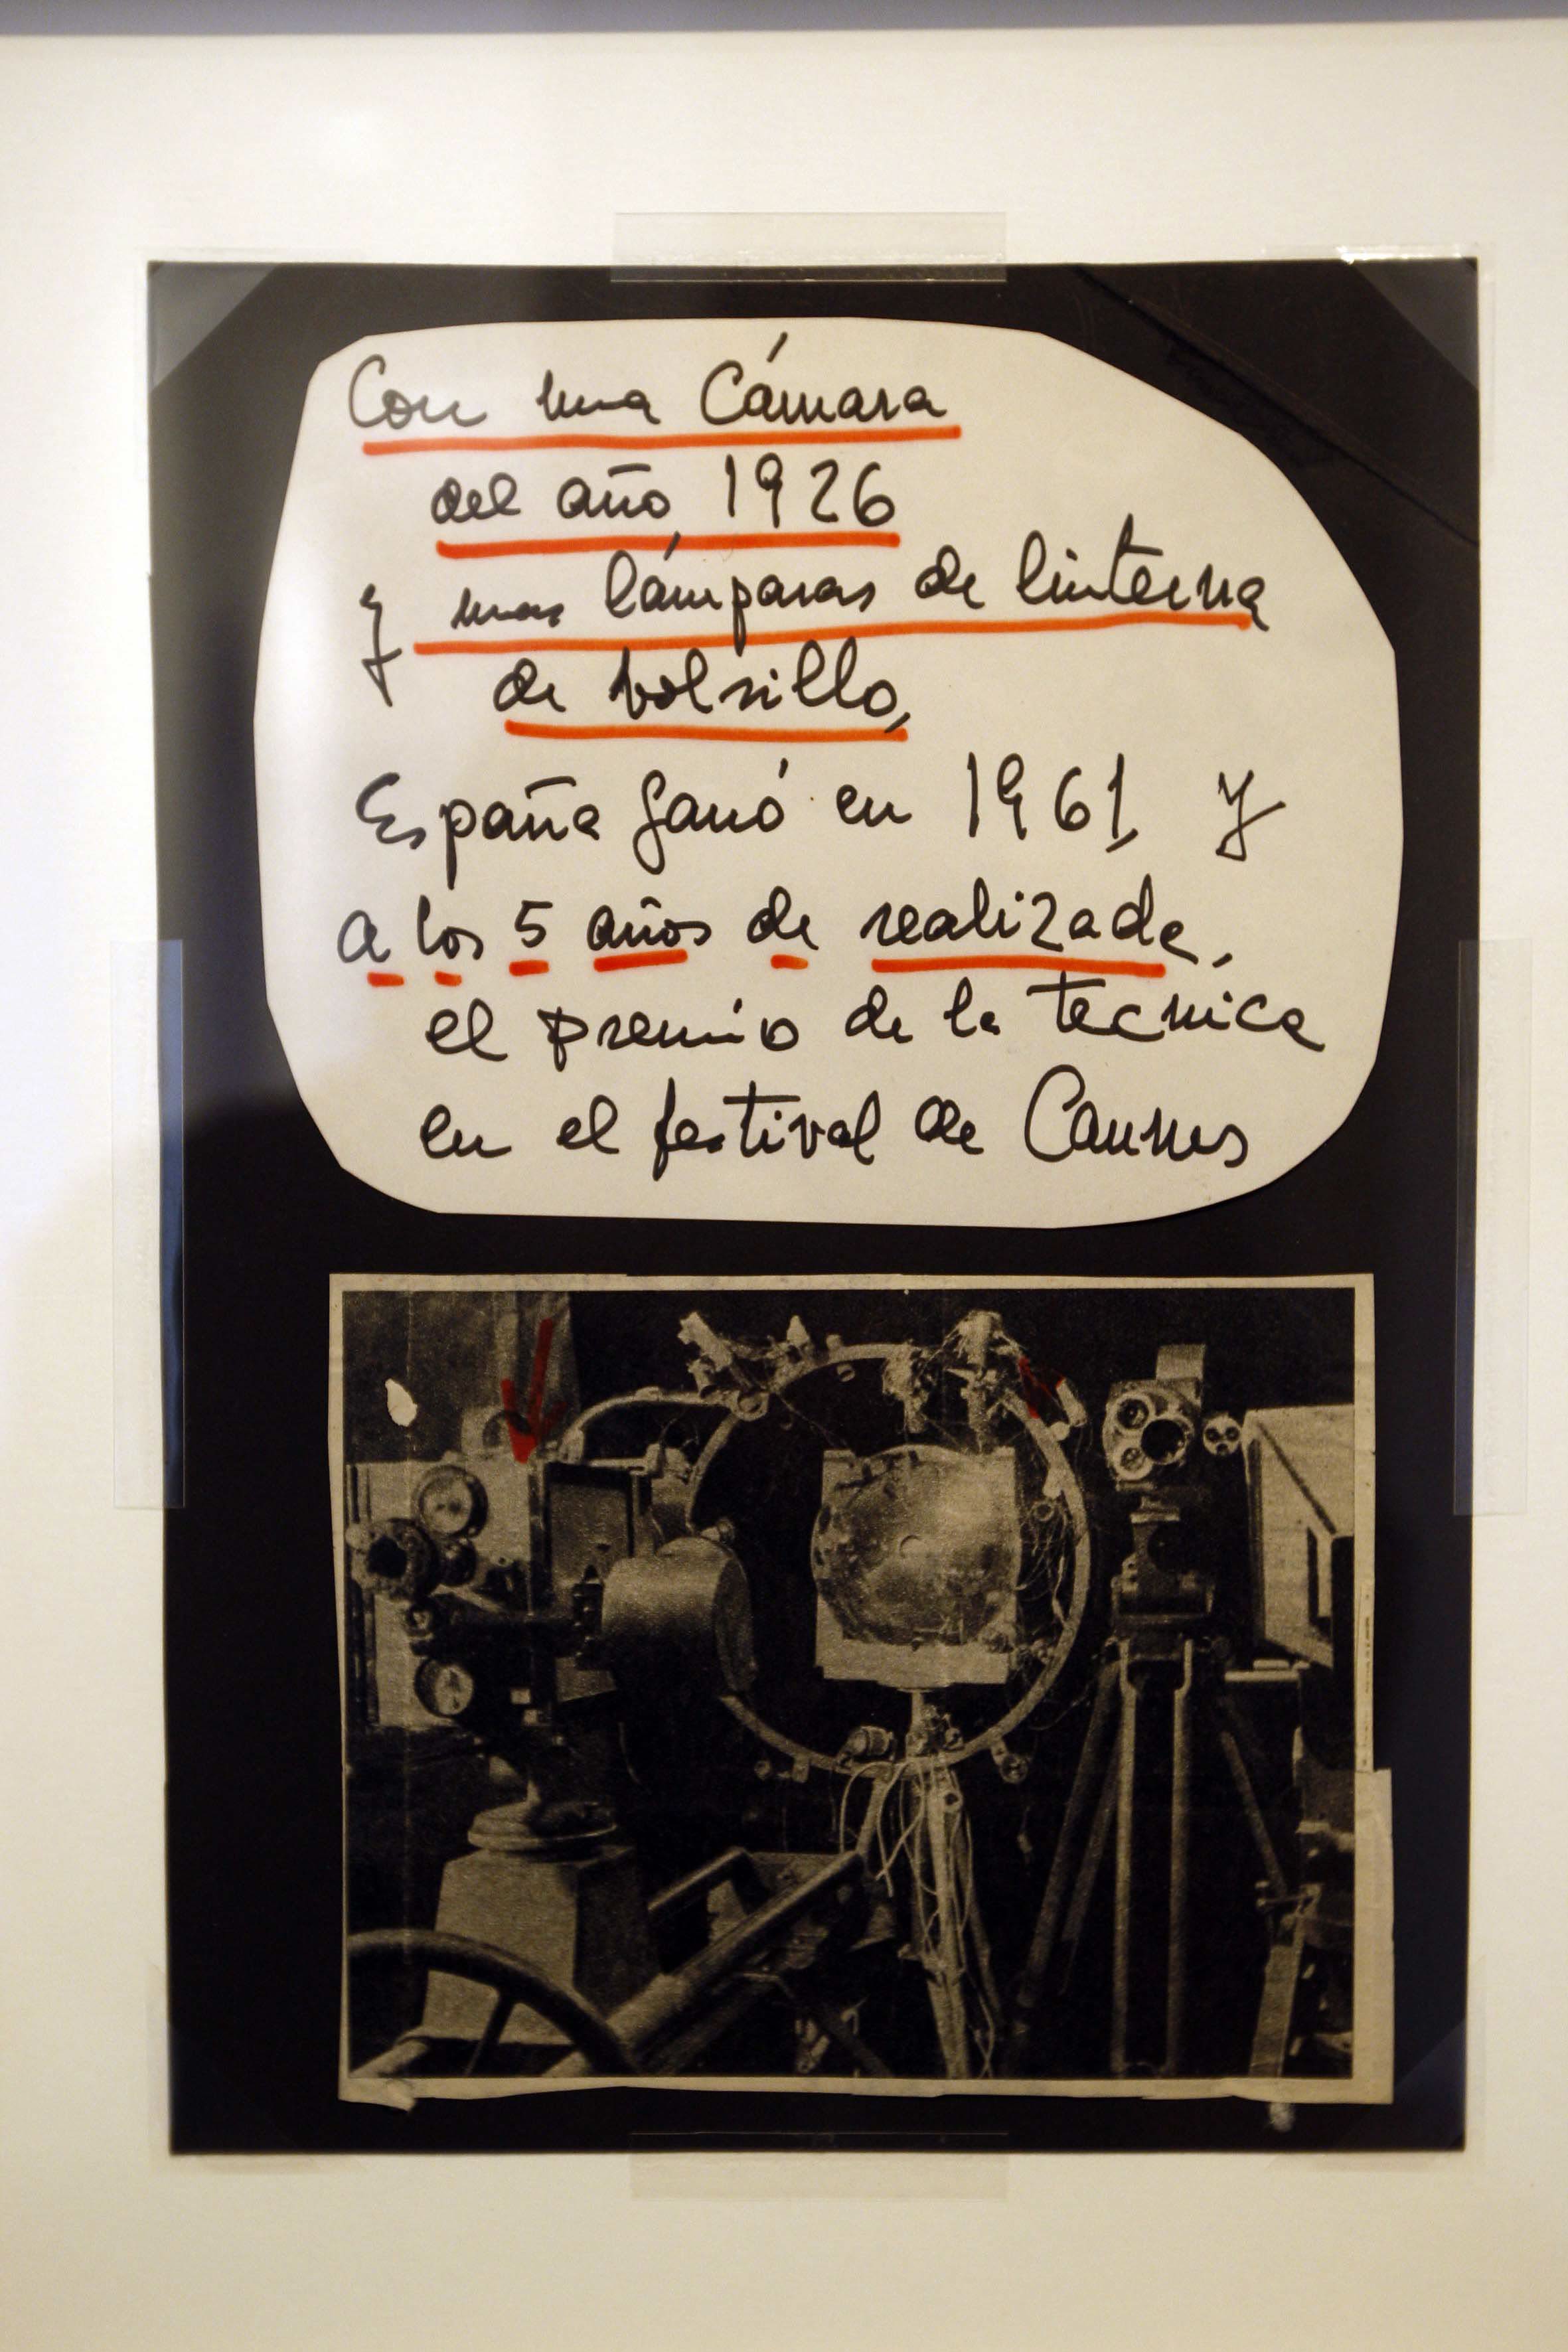 Con una Cámara
del año 1926
y unas lámparas de linterna
de bolsillo,
España ganó en 1961, y
a los 5 años de realizada,
el premio de la tecnica
en el festival de Cannes